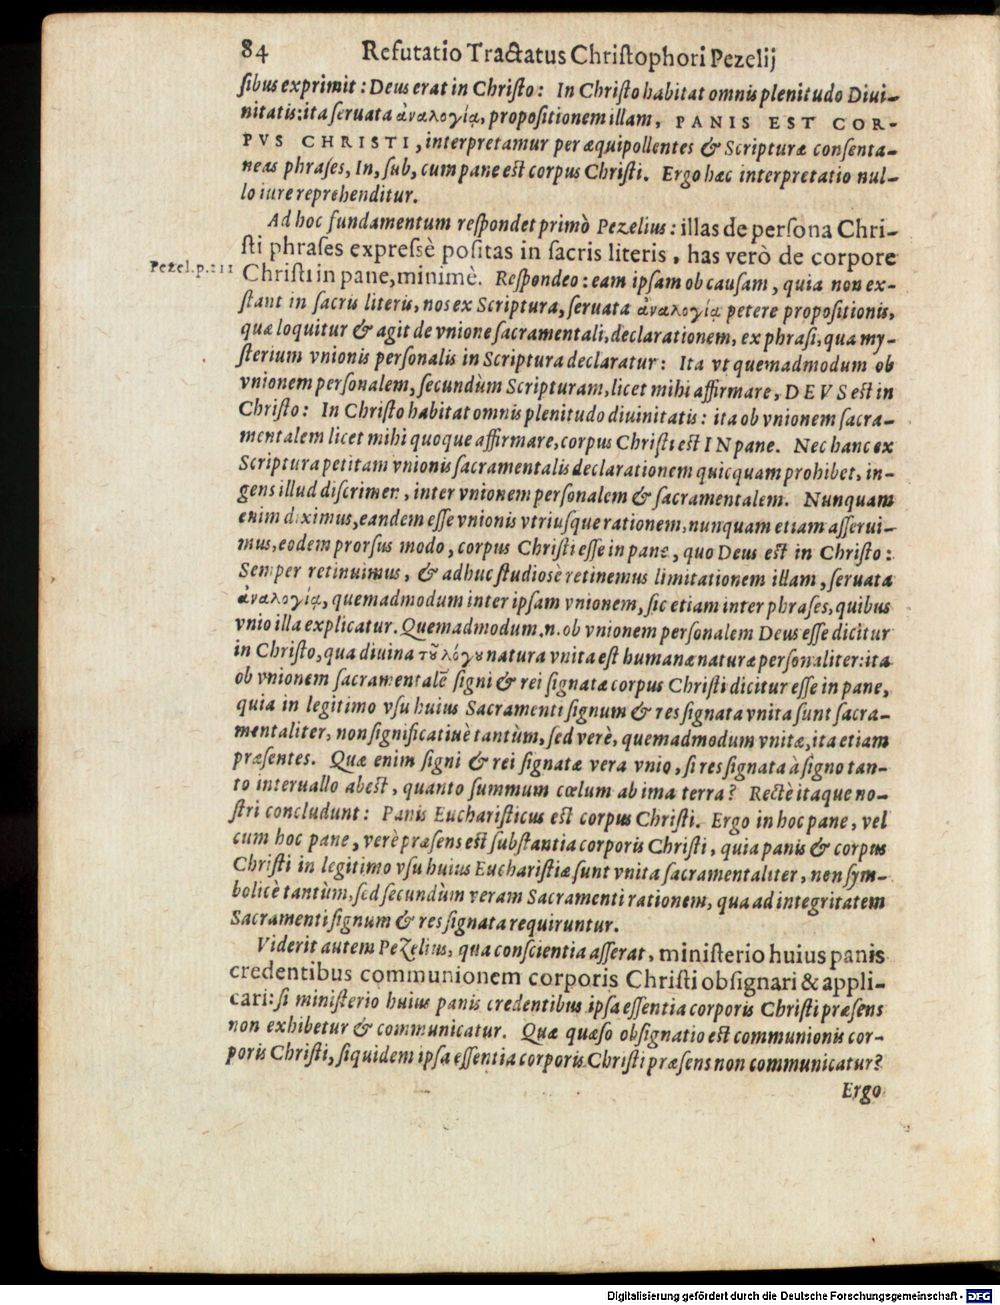 84 Refutatio Tractatus Christophori Pezelij
sibus exprimit: Deus erat in Christo: In Christo habitat omnis plenitudo Diui-
nitatis: ita seruata ἀναλογίᾳ, propositionem illam, PANIS EST COR-
PVS CHRISTI, interpretamur per æquipollentes & Scripturæ consenta-
neas phrases, In, sub, cum pane est corpus Christi. Ergo hæc interpretatio nul-
lo iure reprehenditur.
Ad hoc fundamentum respondet primò Pezelius: illas de persona Chri-
sti phrases expressè positas in sacris literis, has verò de corpore
Pezel.p.211
Christi in pane, minimè. Respondeo: eam ipsam ob causam, quia non ex-
stant in sacris literis, nos ex Scriptura, seruata ἀναλογίᾳ petere propositionis,
quæ loquitur & agit de vnione sacramentali, declarationem, ex phrasi, qua my-
sterium vnionis personalis in Scriptura declaratur: Ita vt quemadmodum ob
vnionem personalem, secundùm Scripturam, licet mihi affirmare, DEVS est in
Christo: In Christo habitat omnis plenitudo diuinitatis: ita ob vnionem sacra-
mentalem licet mihi quoque affirmare, corpus Christi est IN pane. Nec hanc ex
Scriptura petitam vnionis sacramentalis declarationem quicquam prohibet, in-
gens illud discrimen, inter vnionem personalem & sacramentalem. Nunquam
enim diximus, eandem esse vnionis vtriusque rationem, nunquam etiam asserui-
mus, eodem prorsus modo, corpus Christi esse in pane, quo Deus est in Christo:
Semper retinuimus, & adhuc studiosè retinemus limitationem illam, seruata
ἀναλογίᾳ, quemadmodum inter ipsam vnionem, sic etiam inter phrases, quibus
vnio illa explicatur. Quemadmodum.n. ob vnionem personalem Deus esse dicitur
in Christo, qua diuina τοῦ λόγου natura vnita est humanæ naturæ personaliter: ita
ob vnionem sacramentalē signi & rei signatæ corpus Christi dicitur esse in pane,
quia in legitimo vsu huius Sacramenti signum & res signata vnita sunt sacra-
mentaliter, non significatiuè tantùm, sed verè, quemadmodum vnitæ, ita etiam
præsentes. Quæ enim signi & rei signatæ vera vnio, si res signata à signo tan-
to interuallo abest, quanto summum cœlum ab ima terra? Rectè itaque no-
stri concludunt: Panis Eucharisticus est corpus Christi. Ergo in hoc pane, vel
cum hoc pane, verè præsens est substantia corporis Christi, quia panis & corpus
Christi in legitimo vsu huius Eucharistiæ sunt vnita sacramentaliter, non sym-
bolicè tantùm, sed secundùm veram Sacramenti rationem, qua ad integritatem
Sacramenti signum & res signata requiruntur.
Viderit autem Pezelius, qua conscientia asserat, ministerio huius panis
credentibus communionem corporis Christi obsignari & appli-
cari: si ministerio huius panis credentibus ipsa essentia corporis Christi præsens
non exhibetur & communicatur. Quæ quæso obsignatio est communionis cor-
poris Christi, siquidem ipsa essentia corporis Christi præsens non communicatur?
Ergo
Digitalisierung gefördert durch die Deutsche Forschungsgemeinschaft - DFG